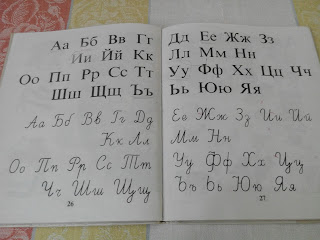 Аа Бб Вв Гг
Ии Йй Кк
Оо Пп Рр Сс Тт
Шш Щщ Ъъ
Аа Бб Вв Гг Дд
Кк Лл
Оо Пп Рр Сс Тт
Чч Шш Щщ
26
Дд Ее Жж Зз
Лл Мм Нн
Уу Фф Хх Цц Чч
Ьь Юю Яя
Ее Жж Зз Ии Йй
Мм Нн
Уу Фф Хх Цц
Ъъ Ьь Юю Яя
27